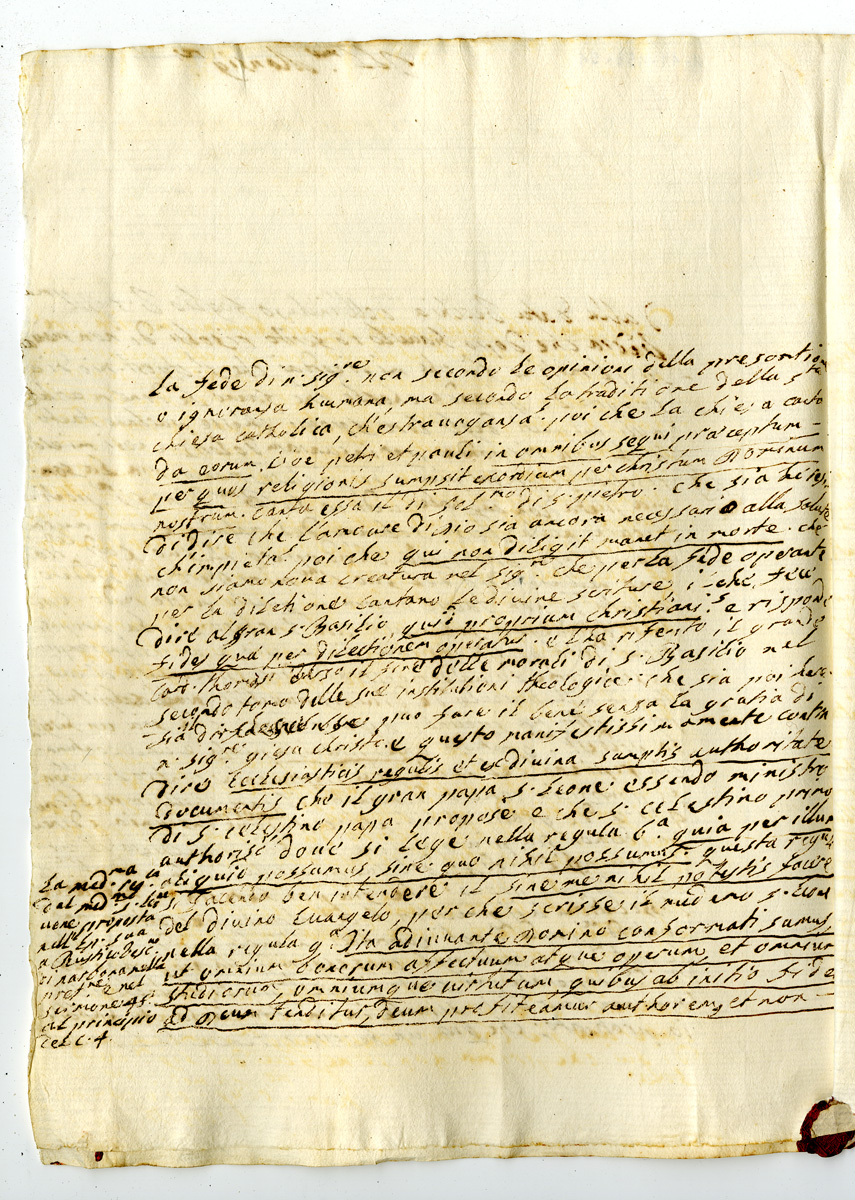 La fede di n. sig.re non secondo le opinioni della presontione
o ignoransa humana, ma secondo la traditione della s.te
chiesa catholica, ch'estravagansa. poi che la chiesa canta
da eorum. l'oe petri et pauli in omnibus sequi praeceptum
per quos religionis sumpsit exordium per christum Dominum
nostrum. canta essa il di s. pietro. che sia heresi
di dire che l'amore di dio sia ancora necessario alla salute
ch'impieta poi che qui non diligit manet in morte. che
non siamo nova creatura nel sig.re che per la fede operante
per la diletione cantano le divine scriture; i che fece
dire al gran s. Basilio quid proprium christiani? e risponde
fides quae per dilectionem operatur. e l'ha riferito il grande
verso il fine delle morali di s. Basilio nel
secondo tomo delle sue institutioni theologice. che sia poi here-
sia dire che non se puo fare il bene sensa la gratia di
n. sig.re giesu christo. e questo manifestissimamente contra
dire Ecclesiasticis regulis et ex divina sumptis authoritate
documentis che il gran papa s. leone essendo ministro
di s. celestino papa propose e che s. celestino primo
authoriso dove si lege nella regula 6.a quia per illum
aliquid possumus sine quo nihil possumus. questa regula
facendo ben intendere il sine me nihil potestis facere
del divino Evangelo, per che scrisse il medemo s. leone
nella regula 9.a Ita adiuvante Domino conformati sumus,
ut omnium bonorum affectuum atque operum, et omnium
studiorum, omniumque virtutum quibus ab initio fidei
ad Deum tenditur, deum profiteamur authorem, et non
La med.ma reg.a
dal med.mo s. leone
viene proposta
nell' ep. sua
a Rustico Vesc.
di narbona nella
pref.ne e nel
sermone 45.
al principio
del c. 4.